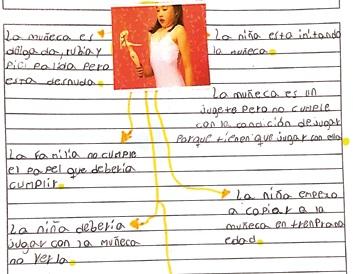 La muñeca es
dElgada, rubia y
Piel Palida Pero
esta desnuda.
La niña esta imitando
la muñeca.
La muñeca es un
jugete Pero no cumple
con la condición de jugar
Porque tienen que jugar con ella
La familia no cumple
el papel que deberia
cumplir.
La niña empezo
a copiar a la
muñeca en temprana
edad.
La niña deberia
jugar con la muñeca
no verla.